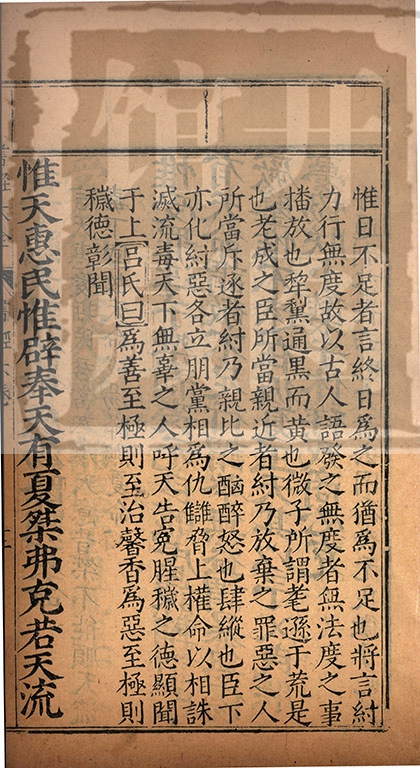 惟日不足者言終日爲之而猶爲不足也將言紂
力行無度故以古人語發之無度者無法度之事
播放也犂黧通黒而黄也微子所謂耄遜于荒是
也老成之臣所當親近者紂乃放棄之罪惡之人
所當斥逐者紂乃親比之酗醉怒也肆縱也臣下
亦化紂惡各立朋黨相爲仇讎脅上權命以相誅
滅流毒天下無辜之人呼天告冤腥穢之德顯聞
于上呂氏曰爲善至極則至治馨香爲惡至極則
穢德彰聞
惟天惠民惟辟奉天有夏桀弗克若天流